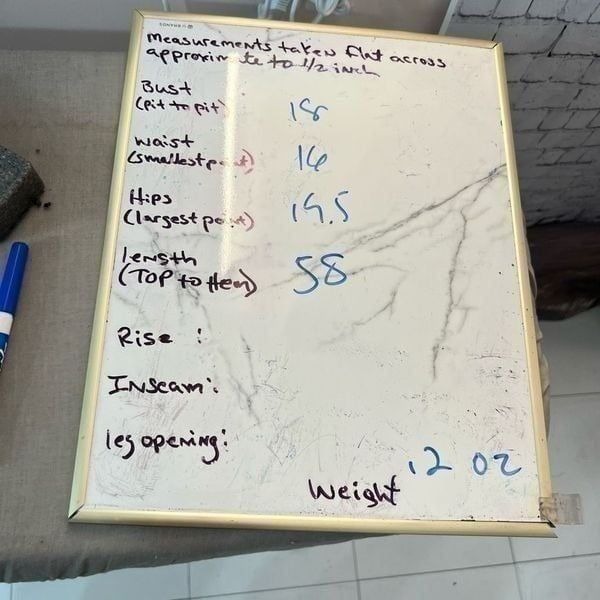 Measurements taken flat across
approximate to 1/2 inch
Bust
(pit to pit) 18
waist
(smallest point) 16
Hips
(largest point) 19.5
length
(TOP to Hem) 58
Rise :
Inseam:
leg opening:
Weight .12 oz